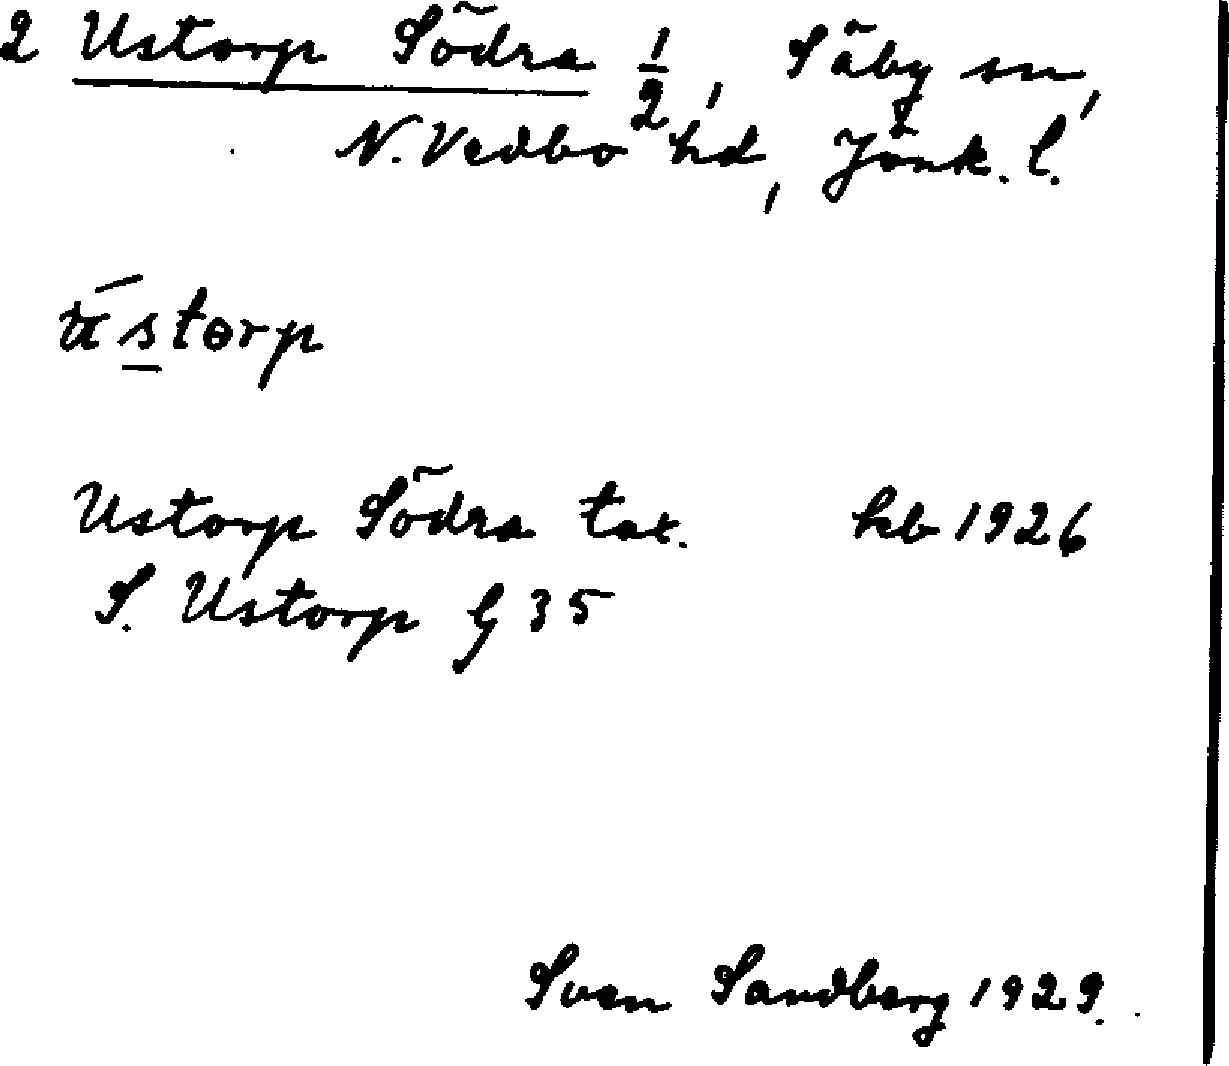 2 Ustorp Södra 1/2, Säby sn,
N. Vedbo hd, Jönk. l.
storp
Ustorp Södra tax. hb 1926
S. Ustorp G 35
Sven Sandberg 1929.